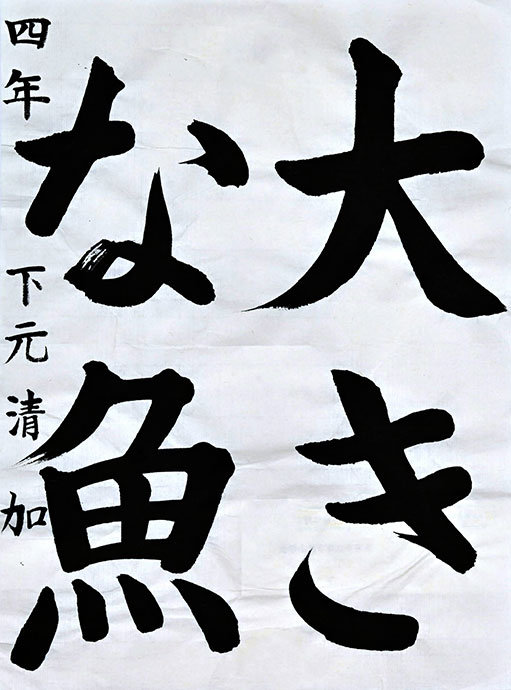 大き
な魚
四年 下元清加